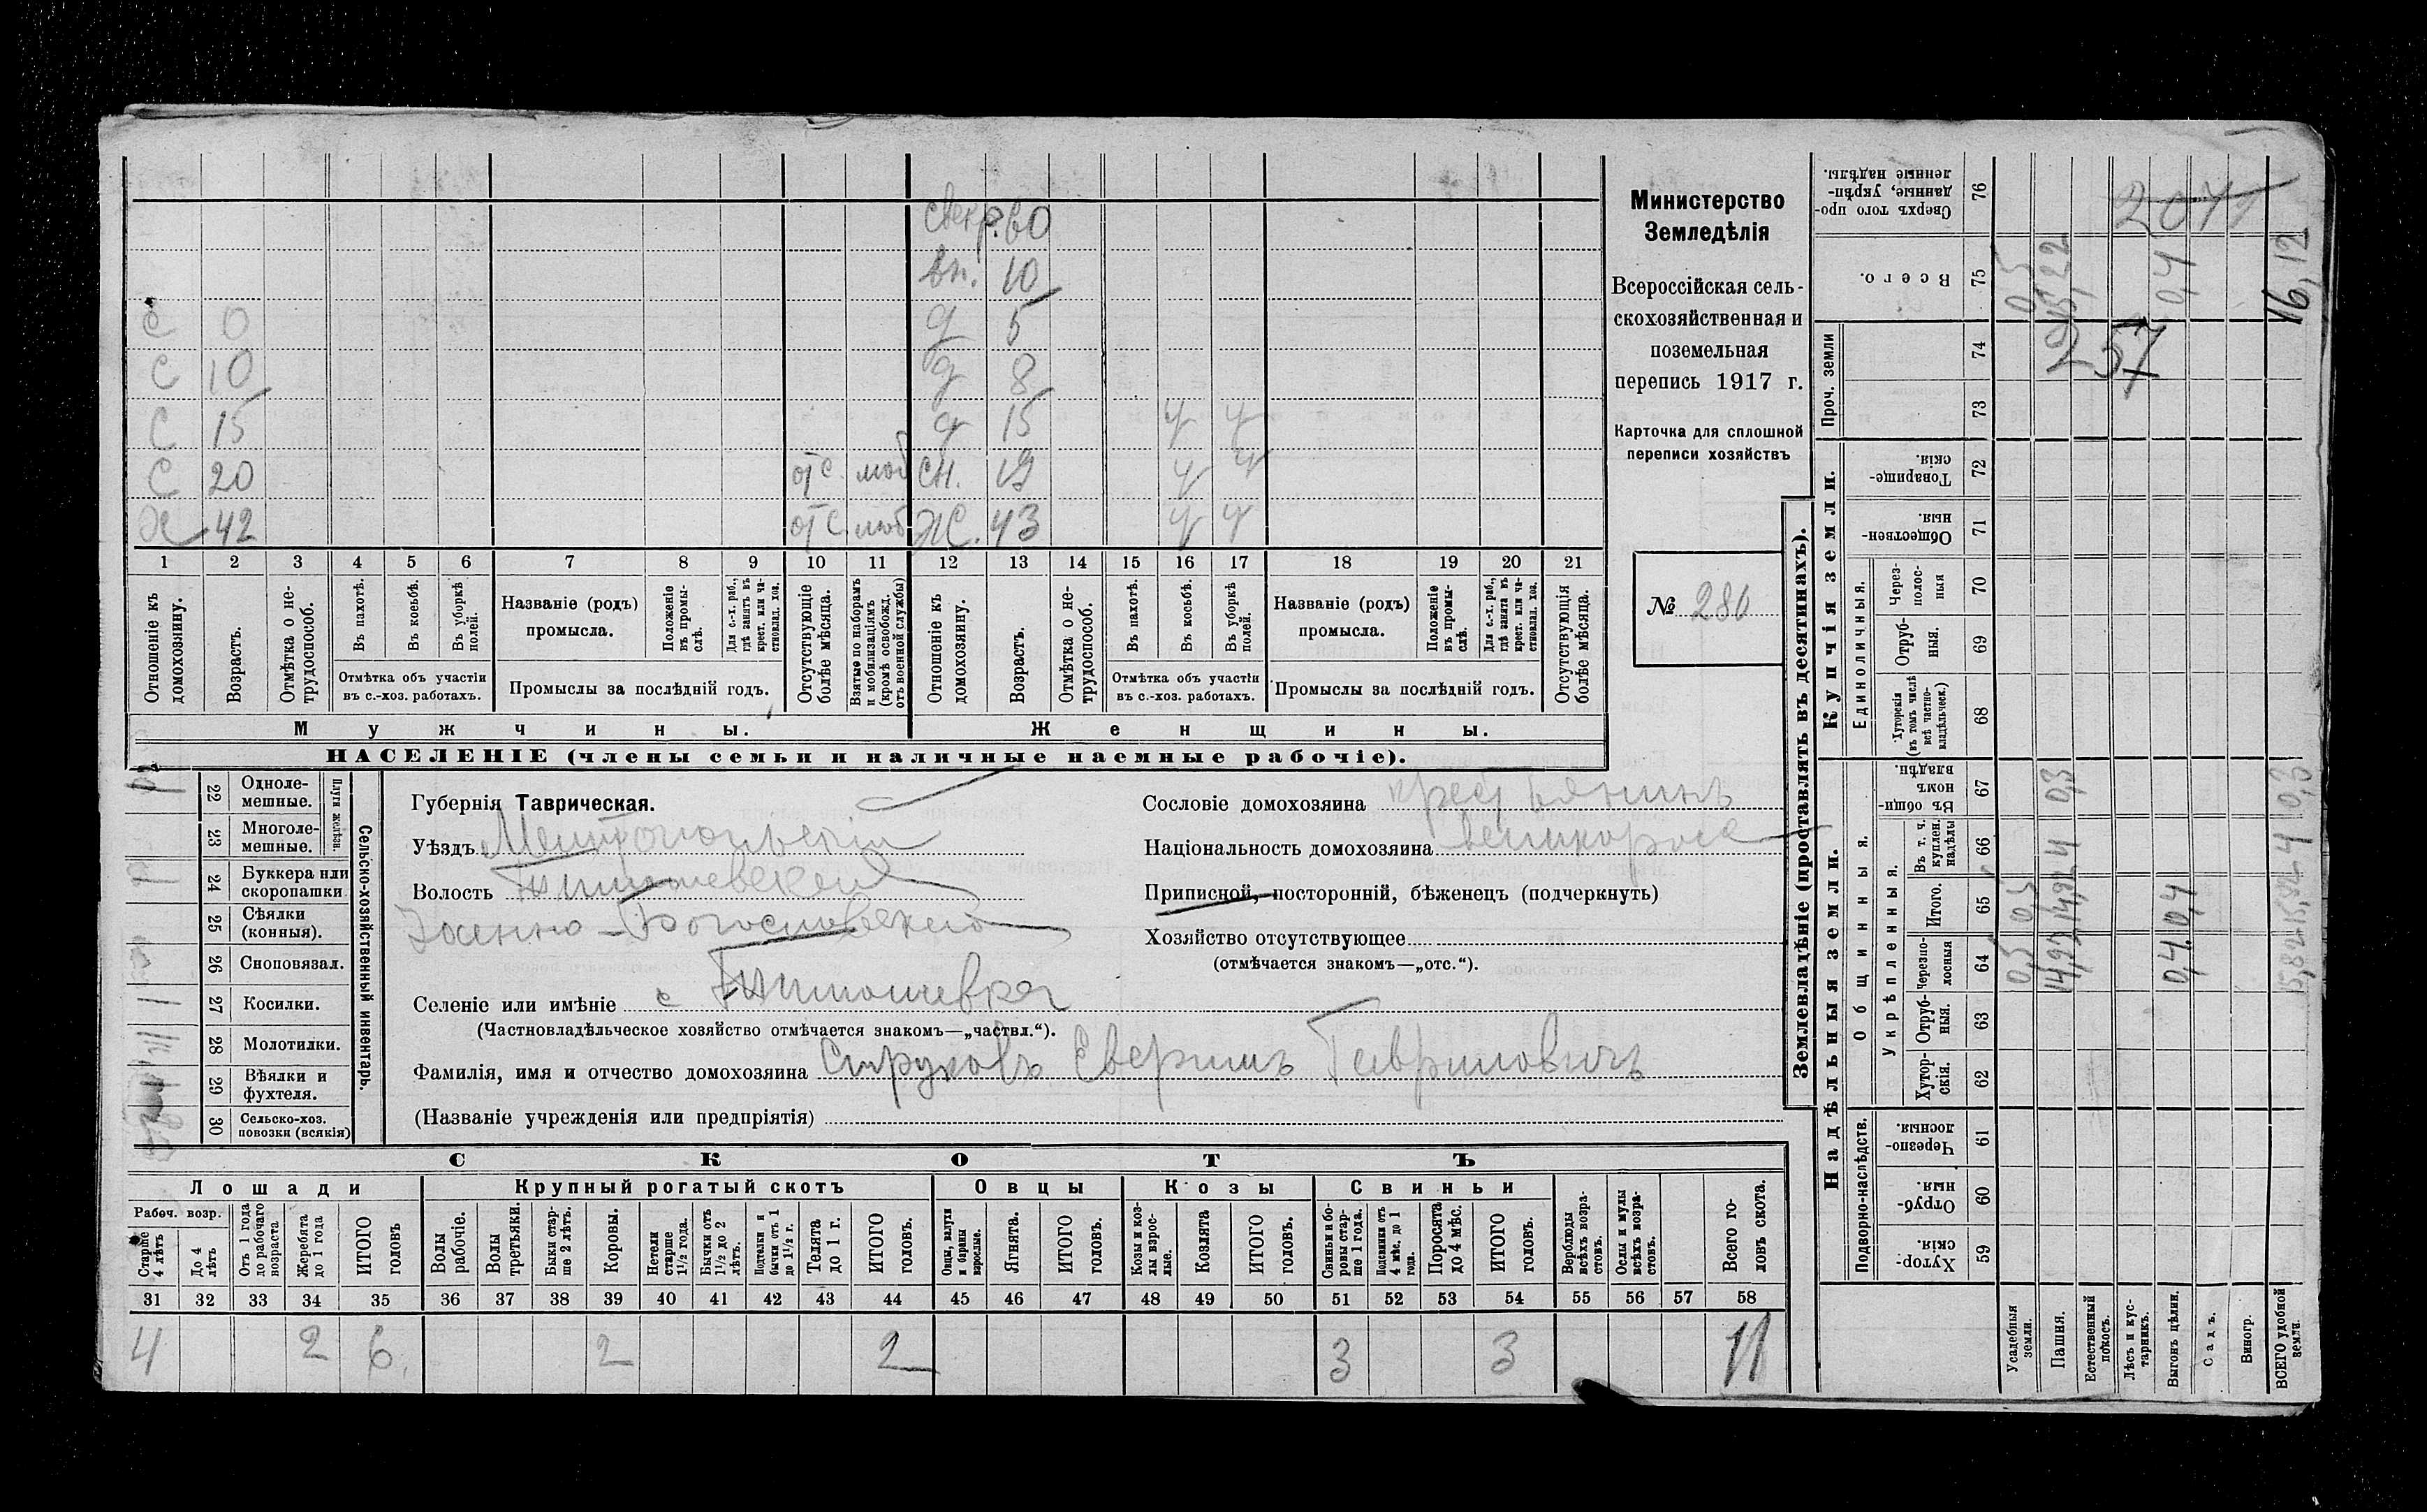 свекр. 60
вн. 10
С 0 д 5
С 10 д 8
С 15 д 15 ч ч
С 20 отс. моб сн. 19 ч ч
Х 42 отс моб Ж. 43 ч ч
1 2 3 4 5 6 7 8 9 10 11 12 13 14 15 16 17 18 19 20 21
Отношеніе къ домохозяину.
Возрастъ.
Отмѣтка о нетрудоспособ.
Въ пахотѣ.
Въ косьбѣ.
Въ уборкѣ полей.
Отмѣтка объ участіи
въ с.-хоз. работахъ.
Названіе (родъ)
промысла.
Положеніе въ промыслѣ.
Для с.-х. раб., гдѣ занятъ въ крест. или частновлад. хоз.
Промыслы за послѣдній годъ.
Отсутствующіе болѣе мѣсяца.
Взятые по наборамъ и мобилизаціямъ (кромѣ освобожд. отъ военной службы)
Отношеніе къ домохозяину.
Возрастъ.
Отмѣтка о нетрудоспособ.
Въ пахотѣ.
Въ косьбѣ.
Въ уборкѣ полей.
Отмѣтка объ участіи
въ с.-хоз. работахъ.
Названіе (родъ)
промысла.
Положеніе въ промыслѣ.
Для с.-х. раб., гдѣ занята въ крест. или частновлад. хоз.
Промыслы за послѣдній годъ.
Отсутствующія болѣе мѣсяца.
Мужчины. Женщины.
НАСЕЛЕНІЕ (члены семьи и наличные наемные рабочіе).
Министерство
Земледѣлія
Всероссійская сель-
скохозяйственная и
поземельная
перепись 1917 г.
Карточка для сплошной
переписи хозяйствъ
№ 280
22 Одноле-
мешные.
23 Многоле-
мешные.
Плуги желѣзн.
24 Буккера или
скоропашки
25 Сѣялки
(конныя).
26 Сноповязал.
27 Косилки. 1
28 Молотилки.
29 Вѣялки и
фухтеля.
30 Сельско-хоз.
повозки (всякія)
Сельско-хозяйственный инвентарь.
Губернія Таврическая.
Уѣздъ Мелитопольскій
Волость Тимошевской
Іоанно-Богословской
Селеніе или имѣніе с Тимошевка
(Частновладѣльческое хозяйство отмѣчается знакомъ—„частвл.“).
Фамилія, имя и отчество домохозяина Струковъ Гавриловичъ
(Названіе учрежденія или предпріятія)
Сословіе домохозяина крестьянинъ
Національность домохозяина великороссъ
Приписной, посторонній, бѣженецъ (подчеркнуть)
Хозяйство отсутствующее
(отмѣчается знакомъ—„отс.“).
СКОТЪ
Лошади Крупный рогатый скотъ Овцы Козы Свиньи
Рабоч. возр.
Старше 4 лѣтъ
До 4 лѣтъ
Отъ 1 года до рабочаго возраста
Жеребята до 1 года
ИТОГО головъ
Волы рабочіе.
Волы третьяки.
Быки старше 2 лѣтъ.
Коровы.
Нетели старше 1½ года.
Бычки отъ 1½ до 2 лѣтъ.
Подтелки и бычки отъ 1 до 1½ г.
Телята до 1 г.
ИТОГО головъ.
Овцы, валухи и бараны взрослые.
Ягнята.
ИТОГО головъ.
Козы и козлы взрослые.
Козлята
ИТОГО головъ.
Свиньи и боровы старше 1 года.
Подсвинки отъ 4 мѣс. до 1 года.
Поросята до 4 мѣс.
ИТОГО головъ.
Верблюды всѣхъ возрастовъ.
Ослы и мулы всѣхъ возрастовъ.
Всего головъ скота.
31 32 33 34 35 36 37 38 39 40 41 42 43 44 45 46 47 48 49 50 51 52 53 54 55 56 57 58
4 2 6 2 2 3 3 11
Землевладѣніе (проставлять въ десятинахъ).
Надѣльныя земли.
Купчія земли.
Проч. земли
Подворно-наслѣдств.
Общинныя.
Укрѣпленныя.
Единоличныя.
Сверхъ того проданные, укрѣпленные надѣлы. 76 2071
Всего. 75 0,5 15,22 0,4 16,12
74 257
73
Товарищескія. 72
Общественныя. 71
Черезполосныя 70
Отрубныя. 69
Хуторскія (въ томъ числѣ всѣ частновладѣльческ.) 68
Въ общинномъ владѣн. 67 0,3 0,3
Въ т. ч. куплен. надѣлы 66 4 4
Итого. 65 0,5 14,92 0,4 15,82
Черезполосныя 64 0,5 14,92 0,4 15,82
Отрубныя. 63
Хуторскія. 62
Черезполосныя. 61
Отрубныя. 60
Хуторскія. 59
Усадебныя земли.
Пашня.
Естественный покосъ.
Лѣсъ и кустарникъ.
Выгонъ цѣлин.
Садъ.
Виногр.
ВСЕГО удобной земли.